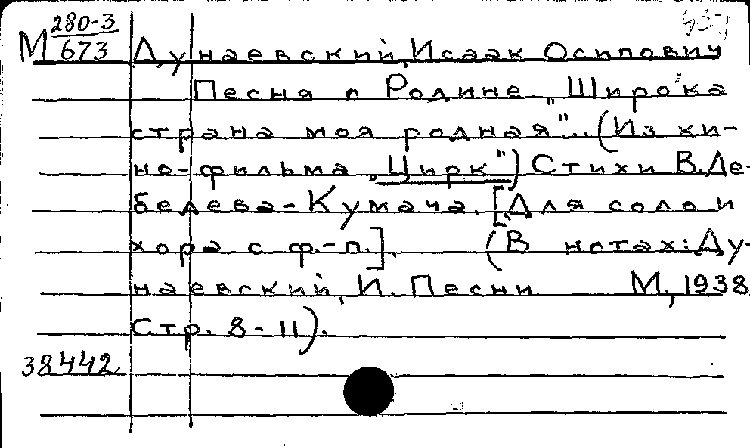 280-3
М 673 Дунаевский, Исаак Осипович
Песня о Родине „Широка
страна моя родная"... (Из ки-
но-фильма „Цирк") Стихи В. Ле-
бедева-Кумача. [Для соло и
хора с ф.-п.]. (В нотах: Ду-
наевский, И. Песни М., 1938
Стр. 8-11).
38442